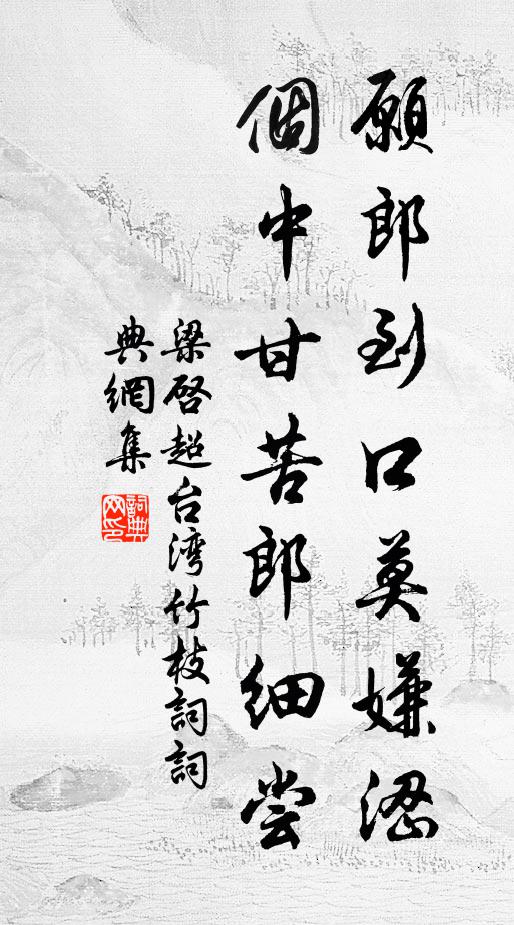 願郎到口莫嫌澀
個中甘苦郎細嘗
梁啓超台湾竹枝詞詞
典網集
詞典
网印